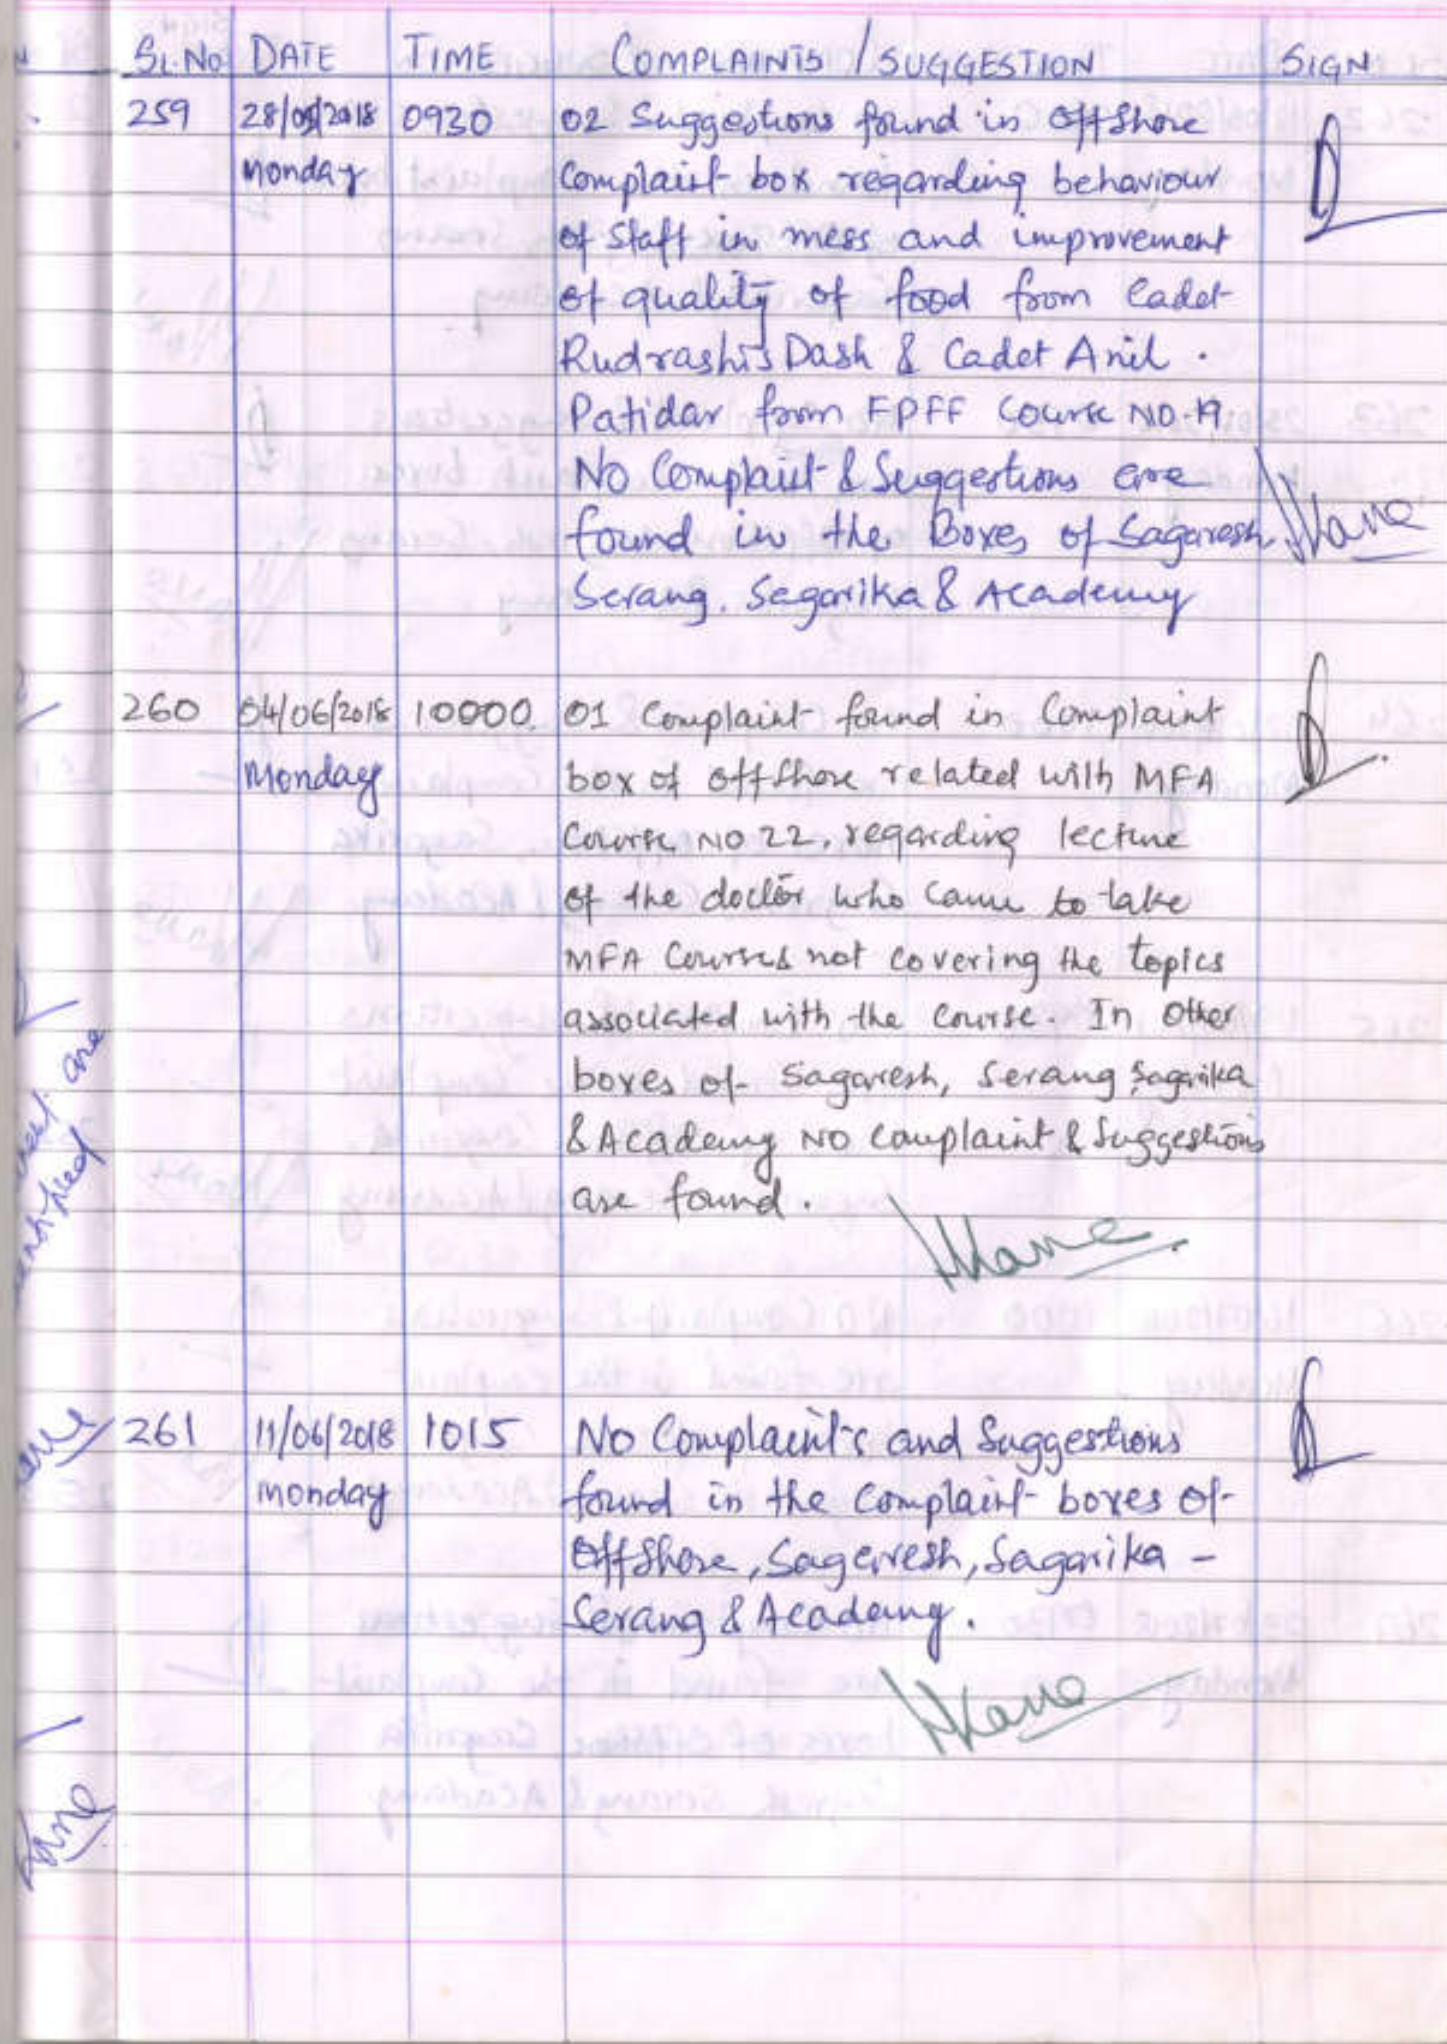 SL.No DATE TIME COMPLAINTS / SUGGESTION SIGN
259 28/05/2018 0930 02 Suggestions found in offshore
Monday Complaint box regarding behaviour
of Staff in mess and improvement
of quality of food from Cadet
Rudrashis Dash & Cadet Anil .
Patidar from FPFF Course NO.19
No Complaint & Suggestions are
found in the Boxes of Sagaresh,
Serang, Sagarika & Academy
260 04/06/2018 10000 01 Complaint found in Complaint
Monday box of offshore related with MFA
Course NO 22, regarding lecture
of the doctor who came to take
MFA Courses not covering the topics
associated with the Course. In Other
boxes of Sagaresh, Serang Sagarika
& Academy NO Complaint & Suggestions
are found.
261 11/06/2018 1015 No Complaint's and Suggestions
Monday found in the Complaint boxes of
Offshore, Sagaresh, Sagarika -
Serang & Academy.
are